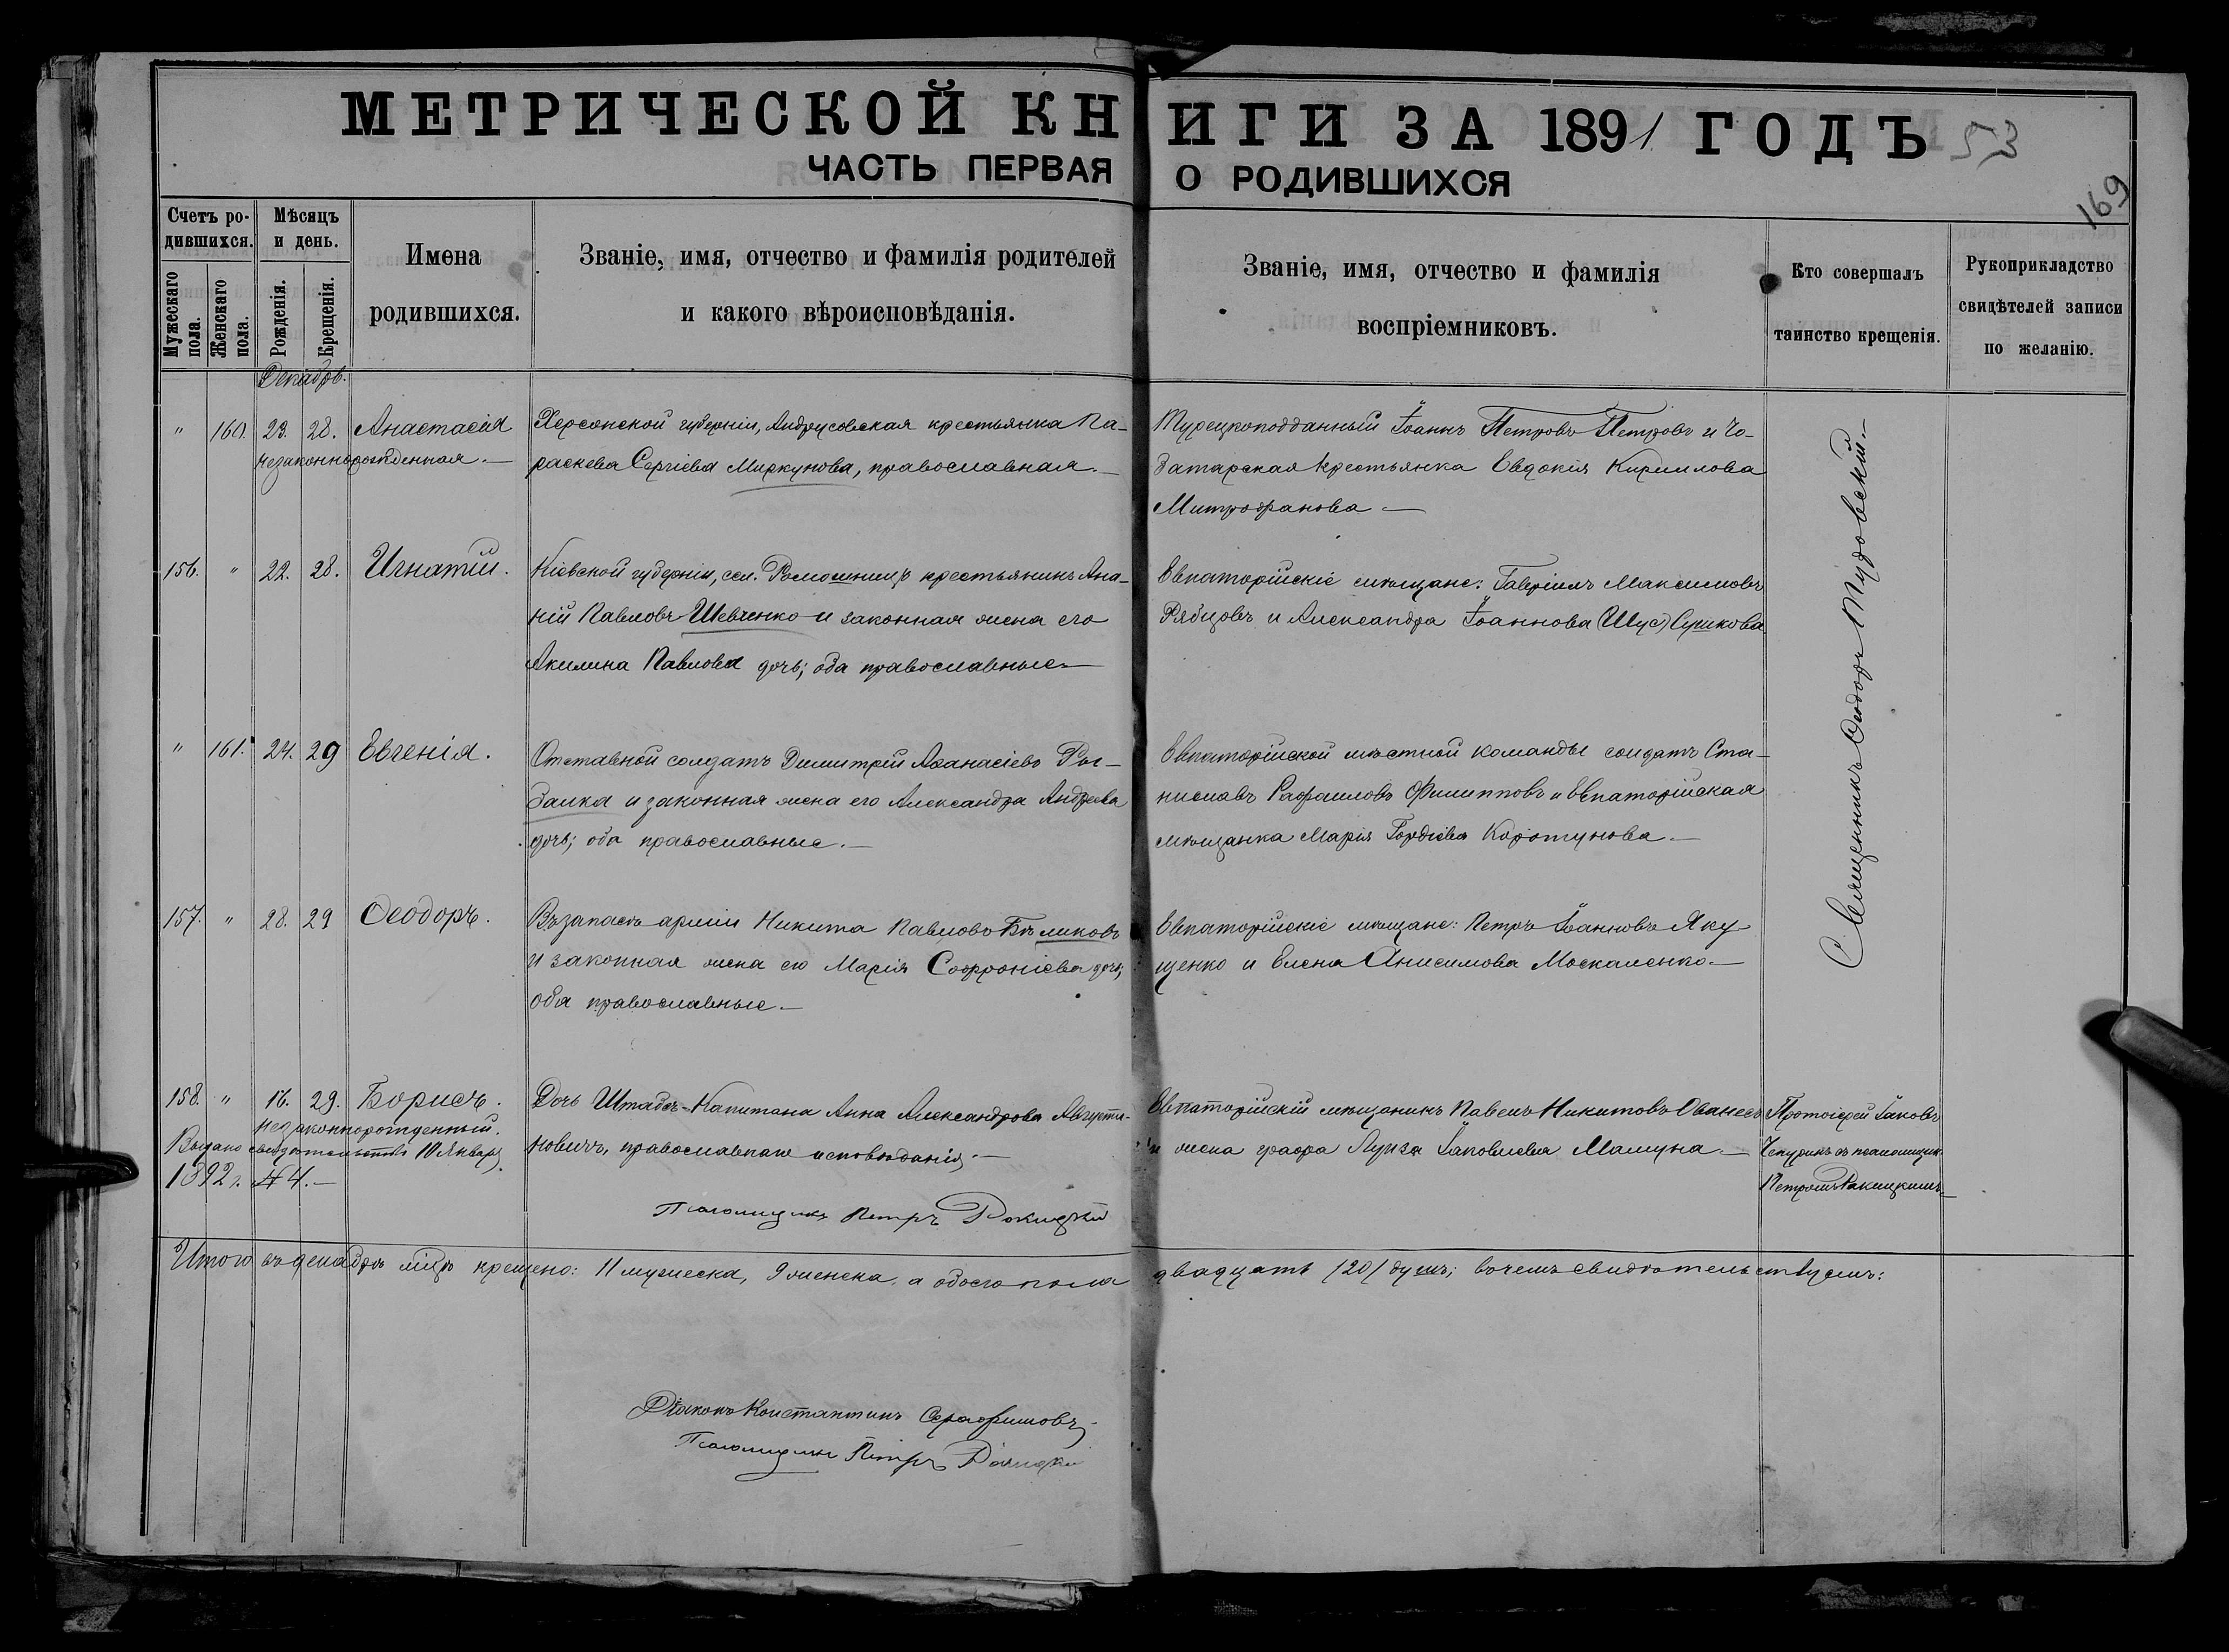 МЕТРИЧЕСКОЙ КНИГИ ЗА 1891 ГОДЪ 53
ЧАСТЬ ПЕРВАЯ О РОДИВШИХСЯ
169
Счетъ ро-
дившихся.
Мужескаго пола.
Женскаго пола.
Мѣсяцъ
и день.
Рожденія.
Крещенія.
Имена
родившихся.
Званіе, имя, отчество и фамилія родителей
и какого вѣроисповѣданія.
Званіе, имя, отчество и фамилія
воспріемниковъ.
Кто совершалъ
таинство крещенія.
Рукоприкладство
свидѣтелей записи
по желанію.
Декабрь.
" 160. 23. 28. Анастасія
незаконнорожденная.
Херсонской губерніи, Андрусовская крестьянка Па-
раскева Сергіева Миркунова, православная.
Турецкоподданный Іоаннъ Петровъ Петровъ и Чо-
батарская крестьянка Евдокія Кириллова
Митрофанова
156. " 22. 28. Игнатій.
Кіевской губерніи, сел. крестьянинъ Ана-
ній Павловъ Шевченко и законная жена его
Акилина Павлова дочь; оба православные
Евпаторійскіе мѣщане: Гавріилъ Максимовъ
Рябцовъ и Александра Іоаннова (Шус) Сушкова
" 161. 24. 29 Евгенія.
Отставной солдатъ Димитрій Аѳанасіевъ Ры-
балка и законная жена его Александра Андреева
дочь; оба православные.
Евпаторійской мѣстной команды солдатъ Ста-
ниславъ Рафаиловъ Филипповъ и Евпаторійская
мѣщанка Марія Гордіева Коротунова
157. " 28. 29 Ѳеодоръ.
Въ запасѣ арміи Никита Павловъ Бѣликовъ
и законная жена его Марія Софроніева дочь;
оба православные.
Евпаторійскіе мѣщане: Петръ Іоанновъ Яку-
щенко и Елена Анисимова Москаленко.
Священникъ Ѳеодоръ Тудовскій.
158. " 16. 29. Борисъ.
незаконнорожденный.
Выдано свидѣтельство 10 Января
1892 г. № 4.
Дочь Штабсъ-Капитана Анна Александрова Августи-
новичъ, православнаго исповѣданія.
Евпаторійскій мѣщанинъ Павелъ Никитовъ Ованесъ
и жена графа Луиза Іаковлева Мамуна.
Протоіерей Іаковъ
Чепуринъ съ псаломщик.
Петромъ Рокицкимъ
Псаломщикъ Петръ Рокицкій
Итого въ декабрѣ мцѣ крещено: 11 мужеска, 9 женска, а обоего пола двадцать /20/ душъ; въ чемъ свидѣтельствуемъ:
Діаконъ Константинъ Серафимовъ
Псаломщикъ Петръ Рокицкій